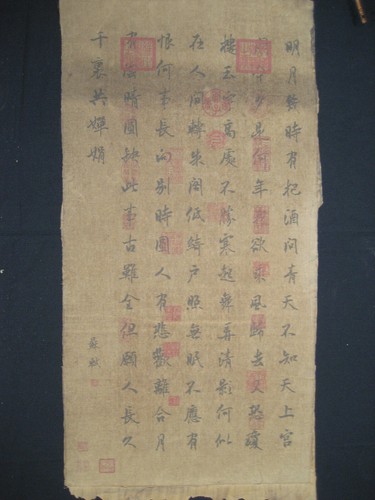 明月幾時有把酒問青天不知天上宮
闕今夕是何年我欲乘風歸去又恐瓊
樓玉宇高處不勝寒起舞弄清影何似
在人間轉朱閣低綺戶照無眠不應有
恨何事長向別時圓人有悲歡離合月
有陰晴圓缺此事古難全但願人長久
千里共嬋娟
蘇軾